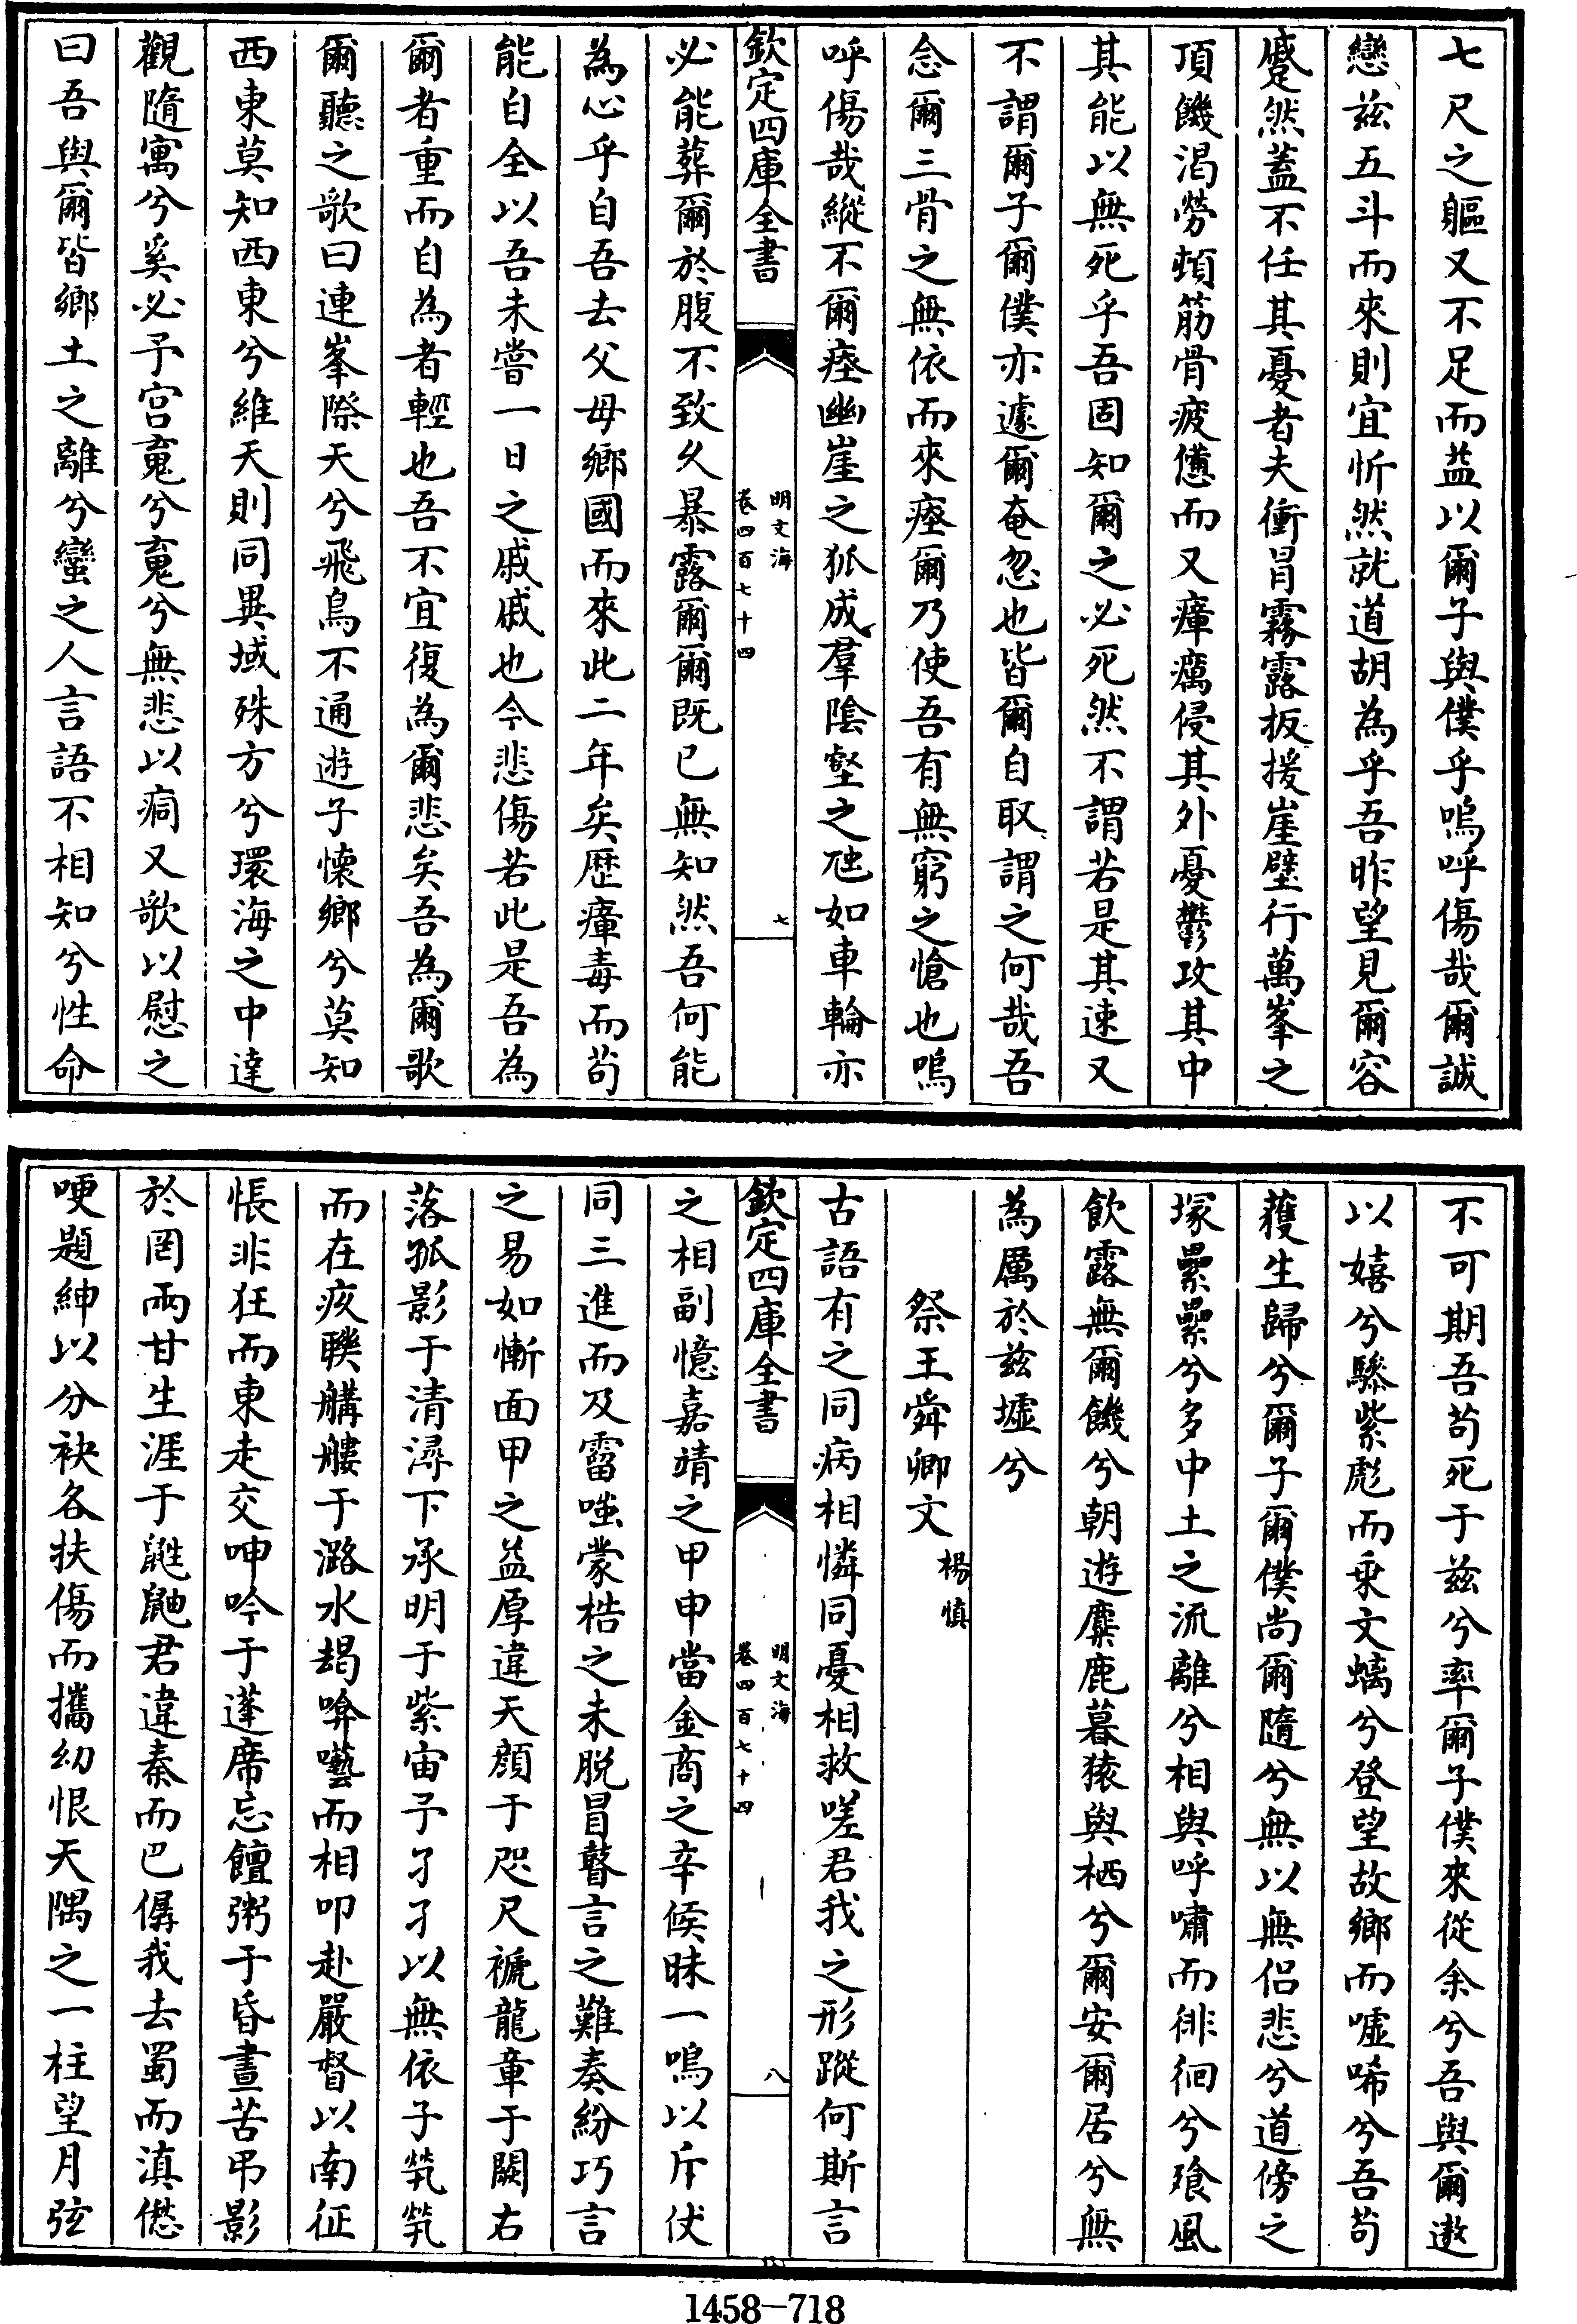 七尺之軀又不足而益以爾子與僕乎嗚呼傷哉爾誠
戀兹五斗而來則宜忻然就道胡為乎吾昨望見爾容
蹙然蓋不任其憂者夫衝冒霧露扳援崖壁行萬峯之
頂饑渴勞頓筋骨疲憊而又瘴癘侵其外憂鬱攻其中
其能以無死乎吾固知爾之必死然不謂若是其速又
不謂爾子爾僕亦遽爾奄忽也皆爾自取謂之何哉吾
念爾三骨之無依而來瘞爾乃使吾有無窮之愴也嗚
呼傷哉縱不爾瘞幽崖之狐成羣陰壑之虺如車輪亦
欽定四庫全書
明文海
卷四百七十四
七
必能葬爾於腹不致久暴露爾爾既已無知然吾何能
為心乎自吾去父母鄉國而來此二年矣歴瘴毒而茍
能自全以吾未嘗一日之戚戚也今悲傷若此是吾為
爾者重而自為者輕也吾不宜復為爾悲矣吾為爾歌
爾聽之歌曰連峯際天兮飛鳥不通遊子懷鄉兮莫知
西東莫知西東兮維天則同異域殊方兮環海之中達
觀隨寓兮奚必予宫䰟兮䰟兮無悲以痌又歌以慰之
曰吾與爾皆鄉土之離兮蠻之人言語不相知兮性命
不可期吾茍死于兹兮率爾子僕來從余兮吾與爾遨
以嬉兮驂紫彪而乗文螭兮登望故鄉而噓唏兮吾茍
蕿生歸兮爾子爾僕尚爾隨兮無以無侣悲兮道傍之
塚纍纍兮多中土之流離兮相與呼嘯而徘徊兮飱風
飲露無爾饑兮朝遊麋鹿暮猿與栖兮爾安爾居兮無
為厲於兹墟兮
祭王舜卿文
楊慎
古語有之同病相憐同憂相救嗟君我之形蹤何斯言
欽定四庫全書
明文海
卷四百七十四
八
之相副憶嘉靖之甲申當金商之辛候昧一嗚以斥仗
同三進而及霤嗤蒙梏之未脱冒瞽言之難奏紛巧言
之易如慚面甲之益厚違天顔于咫尺褫龍章于闕右
落孤影于清潯下承明于紫宙予孑孑以無依子煢煢
而在疚聮䑦艛于潞水朅喭囈而相叩赴嚴督以南征
悵非狂而東走交呻吟于蓬席忘饘粥于昏晝苦弔影
於罔兩甘生涯于鼪鼬君違秦而巴僝我去蜀而滇僽
哽題紳以分袂各扶傷而攜幼恨天隅之一柱望月弦
1458-718